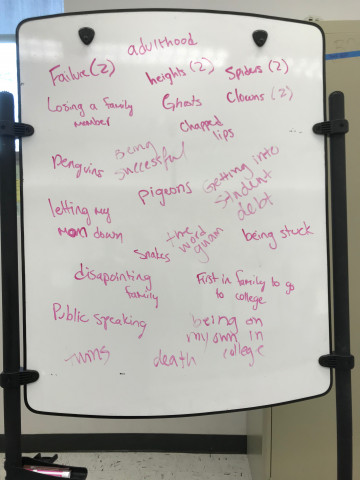 adulthood
Failure (2) heights (2) Spiders (2)
Losing a family
member
Ghosts
Clowns (2)
Chapped
lips
Penguins
Being
successful
pigeons
Getting into
student
debt
letting my
mom down
Snakes
the
word
being stuck
disapointing
family
First in family to go
to college
Public speaking
being on
my own in
college
Twins
death